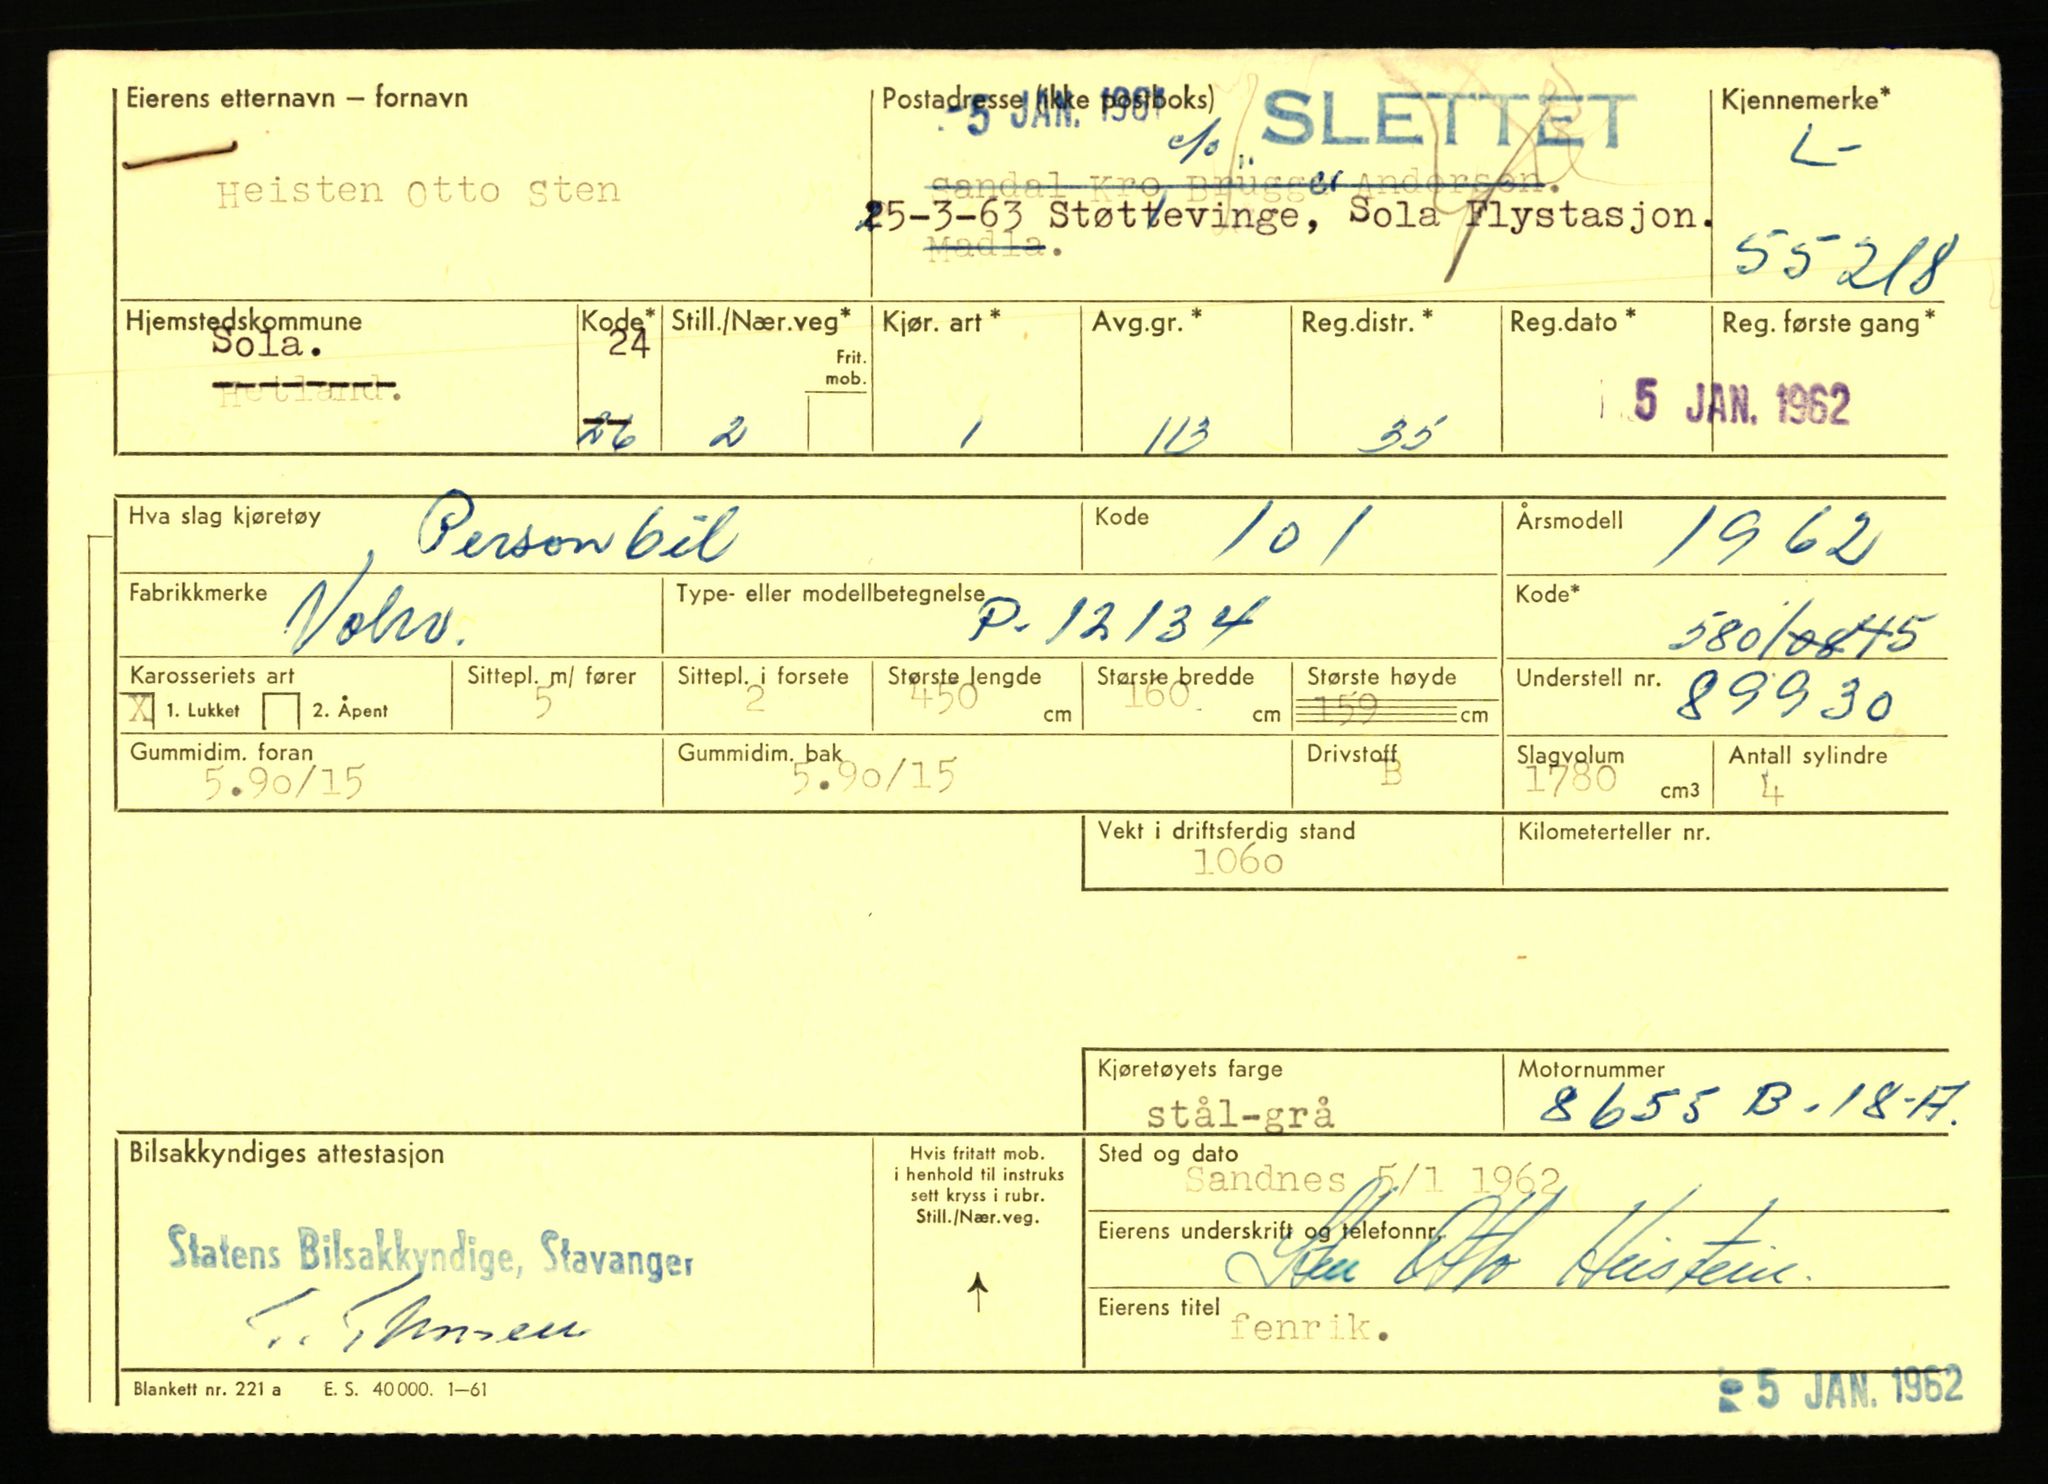 Eierens etternavn – fornavn
Heisten Otto Sten
Postadresse (ikke postboks)
-5 JAN. 1981
SLETTET
c/o
Sandal Kro Brügger Anderson.
25-3-63 Støttevinge, Sola Flystasjon.
Madla.
Kjennemerke*
L-
55218
Hjemstedskommune
Sola.
Hetland.
Kode*
24
26
Still./Nær.veg*
Frit.
mob.
2
Kjør. art *
1
Avg.gr. *
113
Reg.distr. *
35
Reg.dato *
Reg. første gang *
5 JAN. 1962
Hva slag kjøretøy
Personbil
Kode
101
Årsmodell
1962
Fabrikkmerke
Volvo.
Type- eller modellbetegnelse
P-12134
Kode*
580/
45
Karosseriets art
X 1. Lukket
2. Åpent
Sittepl. m/ fører
5
Sittepl. i forsete
2
Største lengde
450 cm
Største bredde
160 cm
Største høyde
159 cm
Understell nr.
89930
Gummidim. foran
5.90/15
Gummidim. bak
5.90/15
Drivstoff
B
Slagvolum
1780 cm3
Antall sylindre
4
Vekt i driftsferdig stand
1060
Kilometerteller nr.
Kjøretøyets farge
stål-grå
Motornummer
8655 B-18-A.
Bilsakkyndiges attestasjon
Statens Bilsakkyndige, Stavanger
Hvis fritatt mob.
i henhold til instruks
sett kryss i rubr.
Still./Nær.veg.
Sted og dato
Sandnes 5/1 1962
Eierens underskrift og telefonnr.
Sten Otto Heistein.
Eierens titel
fenrik.
Blankett nr. 221 a E. S. 40 000. 1–61
5 JAN. 1962